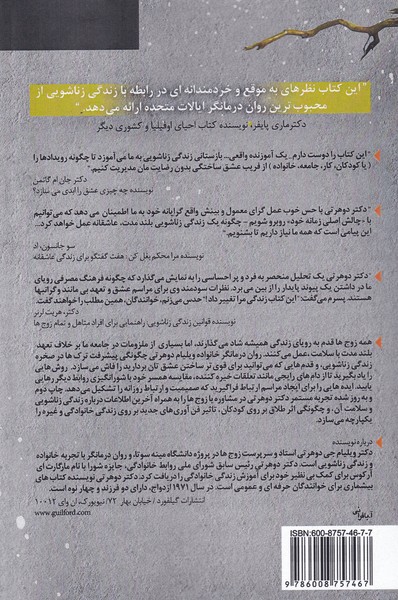 "این کتاب نظرهای به موقع و خردمندانه ای در رابطه با زندگی زناشویی از
محبوب ترین روان درمانگر ایالات متحده ارائه می‌دهد."
دکترماری پایفر، نویسنده کتاب احیای اوفیلیا و کشوری دیگر
"این کتاب را دوست دارم... یک آموزنده واقعی... بازستانی زندگی زناشویی به ما می‌آموزد تا چگونه رویدادها را
(با کودکان، کار، جامعه، خانواده) از فریب عشق ساختگی بدون رضایت مان مدیریت کنیم."
دکتر جان ام گاتمن
نویسنده چه چیزی عشق را ابدی می سازد؟
"دکتر دوهرتی با حس خوب عمل گرای معمول و بینش واقع گرایانه خود به ما اطمینان می دهد که می‌توانیم
با «چالش اصلی زمانه خود» روبرو شویم - چگونه یک زندگی زناشویی بلند مدت، عاشقانه عمل خواهد کرد.
این پیامی است که همه ما نیاز داریم تا بشنویم."
سو جانسون، اد
نویسنده مرا محکم بغل کن: هفت گفتگو برای زندگی عاشقانه
"دکتر دوهرتی یک تحلیل منحصر به فرد و پر احساسی را به نمایش می‌گذارد که چگونه فرهنگ مصرفی رویای
ما در داشتن یک پیوند پایدار را از بین می‌برد. نظرات سودمند وی برای مراسم عشق و تعهد بی مانند و گرانبها
هستند. پسرم می‌گفت: "این کتاب زندگی مرا تغییر داد!» حدس می‌زنم، خوانندگان، همین مطلب را خواهند گفت.
دکتر، هریت لرنر
نویسنده قوانین زندگی زناشویی: راهنمایی برای افراد متاهل و تمام زوج ها
همه زوج ها قدم به رویای زندگی همیشه شاد می گذارند، اما بسیاری از ملزومات در جامعه ما بر خلاف تعهد
بلند مدت با سلامت، عمل می‌کنند. روان درمانگر خانواده ویلیام دوهرتی چگونگی پیشرفت ترک ها در صخره
زندگی زناشویی، و قدم هایی که می‌توانید برای قوی تر ساختن عشق تان بردارید را فاش می‌سازد. روش‌هایی
را یاد بگیرید تا از دام های رایجی مانند تعلقات خیره کننده، مقایسه همسر خود با شورانگیزی روابط دیگر رهایی
یابید. ایده هایی را برای ایجاد مراسم ارتباط فراگیرید که صمیمیت و ارتباط روزانه را تشکیل می‌دهد. چاپ دوم
و به روز شده تجربه مستمر دکتر دوهرتی در مشاوره با زوج ها را به همراه آخرین اطلاعات درباره زندگی زناشویی
و سلامت آن، و چگونگی اثر طلاق بر روی کودکان، تاثیر فن آوری‌های جدید بر روی زندگی خانوادگی و غیره را
یکپارچه می‌سازد.
درباره نویسنده
دکتر ویلیام جی دوهرتی استاد و سرپرست زوج ها در پروژه دانشگاه مینه سوتا، و روان درمانگر با تجربه خانواده
و زندگی زناشویی است. دکتر دوهرتی رئیس سابق شورای ملی روابط خانوادگی، جایزه شورا با نام مارگارت ای
آرکوس برای کمک بی نظیر خود برای آموزش زندگی خانوادگی را دریافت کرد. دکتر دوهرتی نویسنده کتاب های
بیشماری برای خوانندگان حرفه ای و عمومی است. در سال ۱۹۷۱ ازدواج، دو فرزند و چهار نوه است.
انتشارات گیلفورد / خیابان بهار ۷۲/ نیویورک، ان وای ۱۰۰۱۲
www.guilford.com
ISBN:600-8757-46-7-7
9 786008 757467